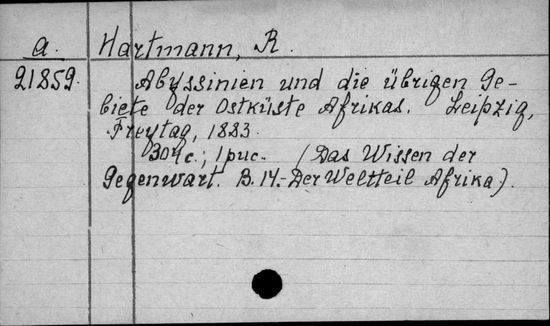 a. Hartmann, R.
21859. Abyssinien und die übrigen Ge-
biete der Ostküste Afrikas. Leipzig,
Freytag, 1883.
304c.; 1 рис. (Das Wissen der
Gegenwart. B. 14.- Der Weltteil Afrika).